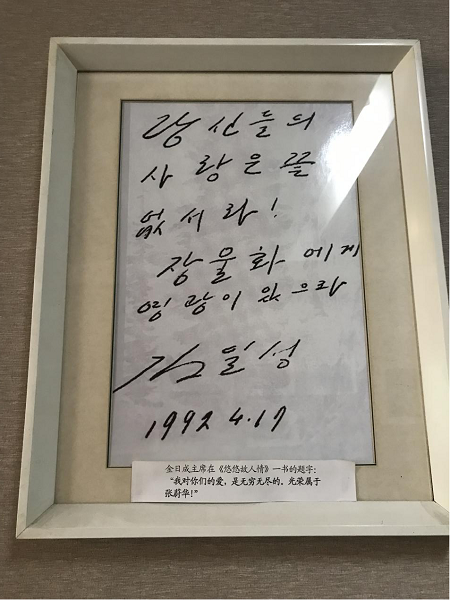 당신들의
사랑은 끝
없서라!
장울화에게
영광이 있으라
김일성
1992 4.17
金日成主席在《悠悠故人情》一书的题字：
“我对你们的爱，是无穷无尽的。光荣属于
张蔚华！”